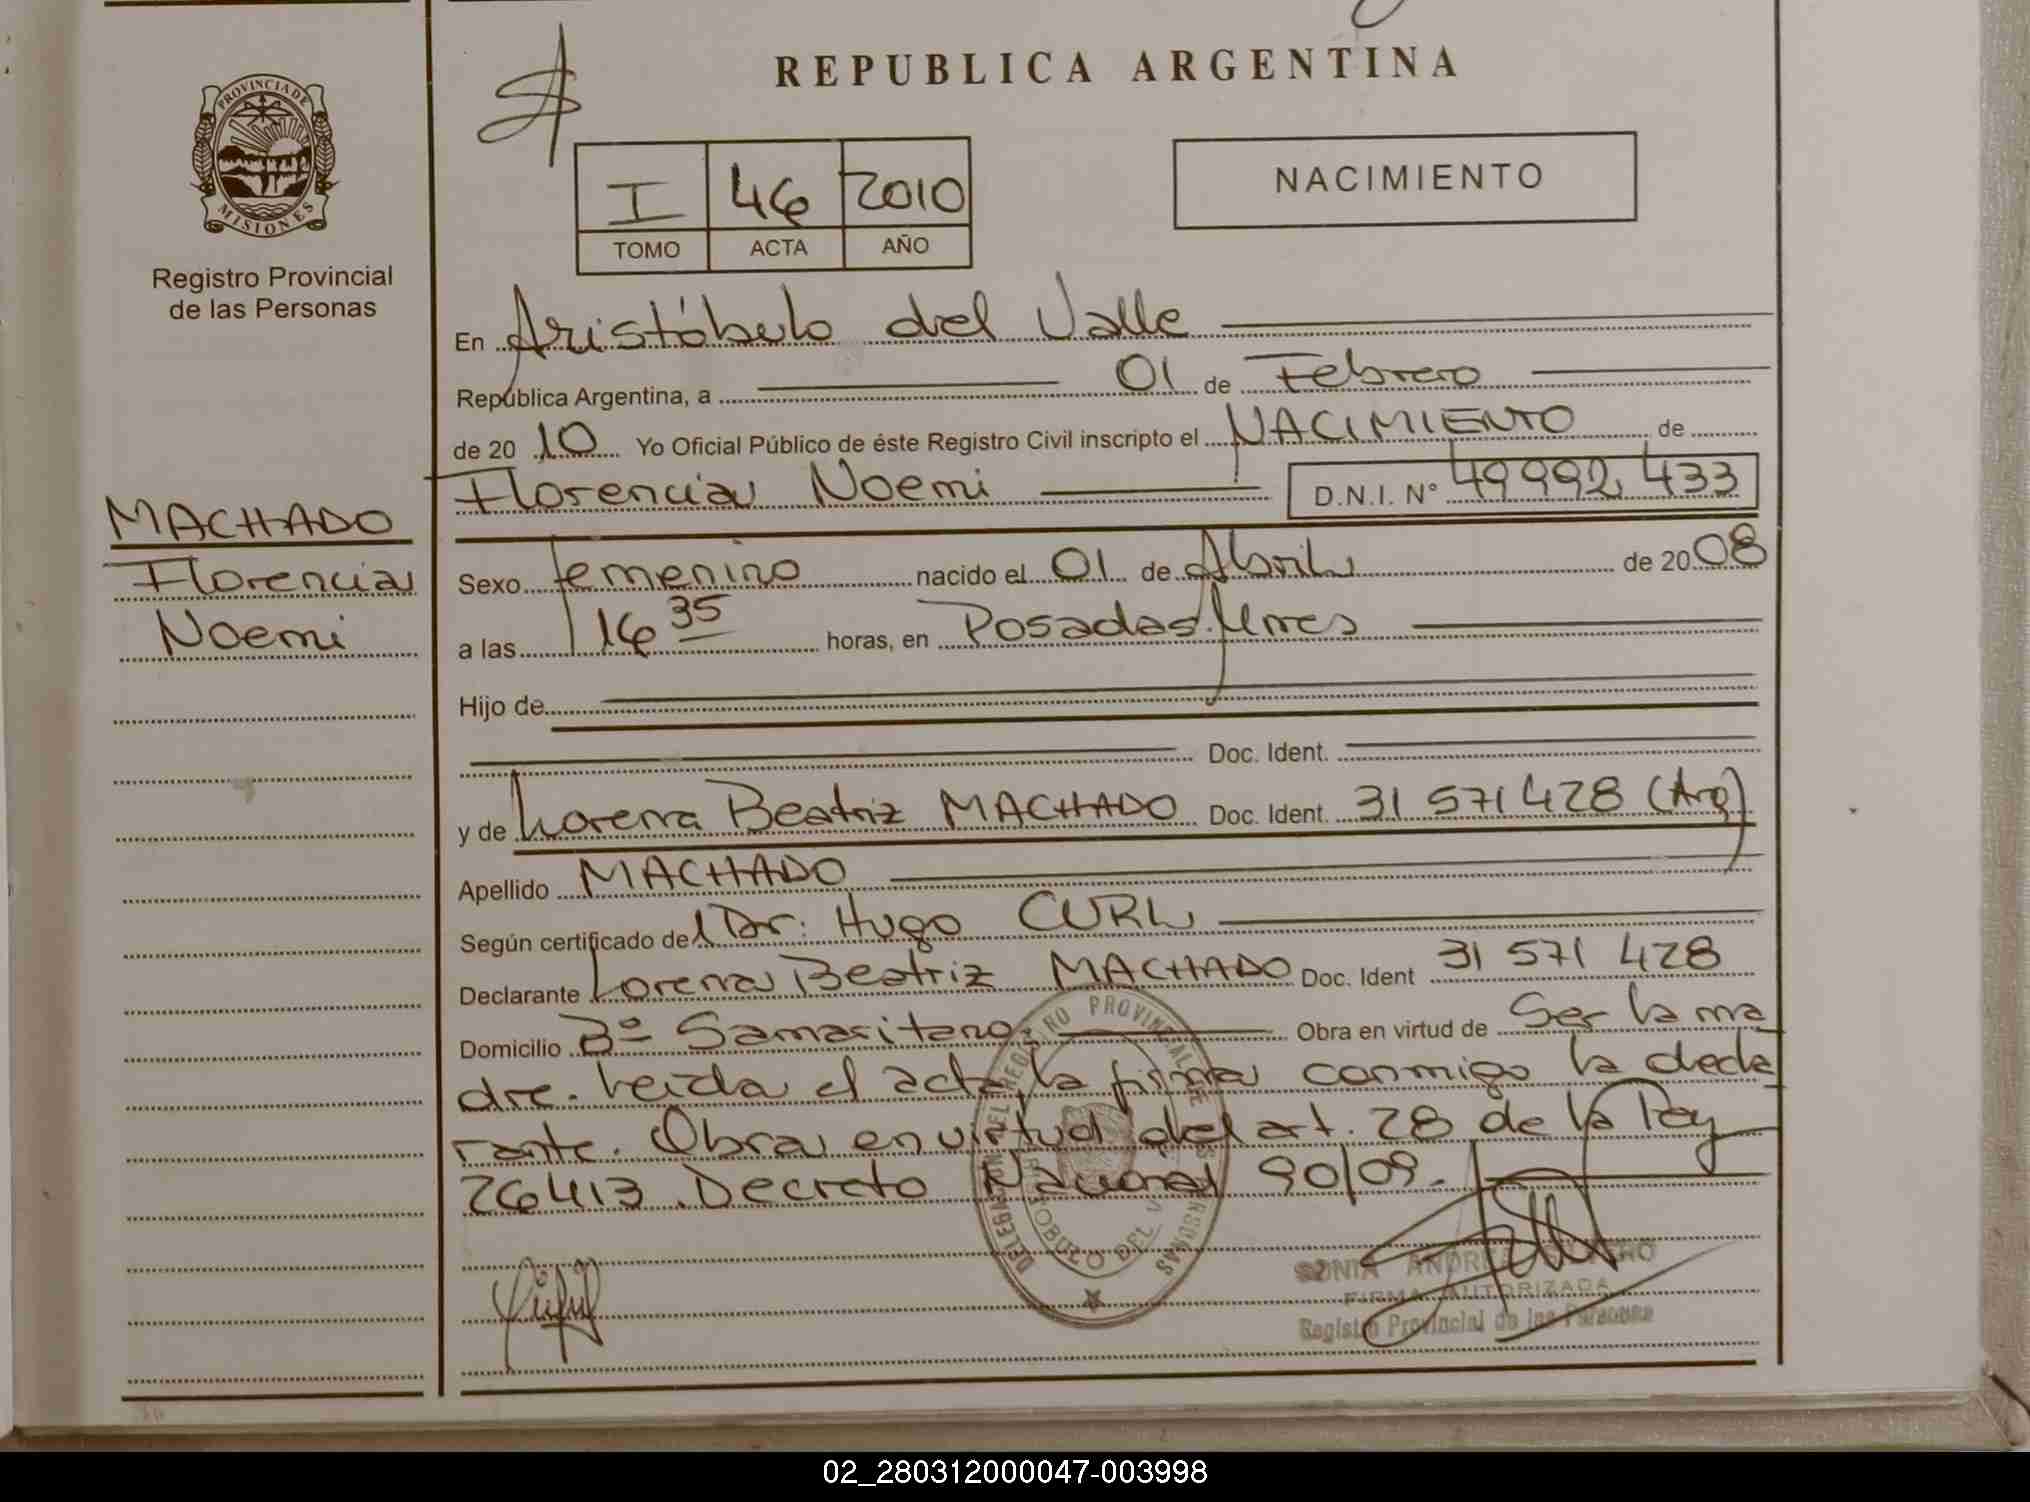 REPUBLICA ARGENTINA
PROVINCIA DE
MISIONES
Registro Provincial
de las Personas
I 46 2010
TOMO ACTA AÑO
NACIMIENTO
En Aristóbulo del Valle
República Argentina, a 01 de Febrero
de 20 10 Yo Oficial Público de éste Registro Civil inscripto el NACIMIENTO de
Florencia Noemi D.N.I. N° 49992.433
MACHADO
Florencia
Noemi
Sexo femenino nacido el 01 de Abril de 20 08
a las 16 35 horas, en Posadas. Mnes
Hijo de
Doc. Ident.
y de Lorena Beatriz MACHADO Doc. Ident. 31 571 428 (Arg)
Apellido MACHADO
Según certificado del Dr: Hugo
Declarante Lorena Beatriz MACHADO Doc. Ident 31 571 428
Domicilio Bº Samaritano. Obra en virtud de Ser la ma
dre. Leida el acta la firma conmigo la decla
rante. Obra en virtud del art. 28 de la Ley
26413. Decreto Nacional 90/09.
DELEGACION DEL REGISTRO PROVINCIAL DE LAS PERSONAS
ARISTOBULO DEL V
SONIA ANDREA
FIRMA AUTORIZADA
Registro Provincial de las Personas
02_280312000047-003998